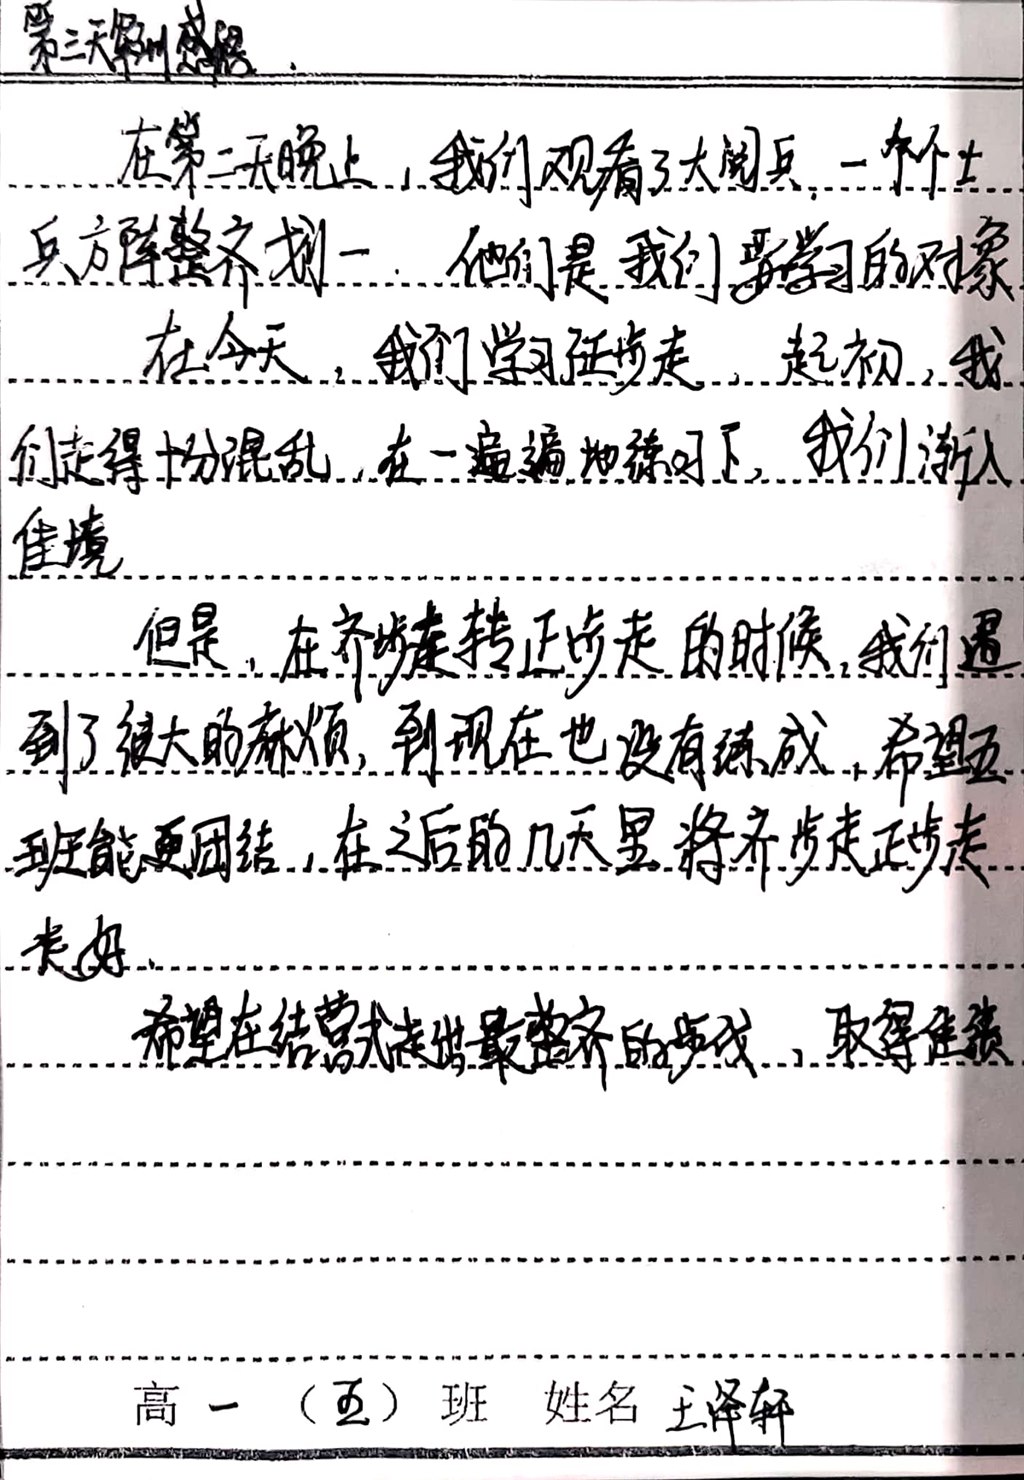 第三天军训感悟.
在第二天晚上,我们观看了大阅兵,一个个士
兵方阵整齐划一.他们是我们要学习的对象
在今天,我们学习正步走,起初,我
们走得十分混乱,在一遍遍地练习下,我们渐入
佳境
但是,在齐步走转正步走的时候,我们遇
到了很大的麻烦,到现在也没有练成,希望五
班能更团结,在之后的几天里将齐步走正步走
走好.
希望在结营式走出最整齐的步伐,取得佳绩
高一(五)班 姓名 王泽轩